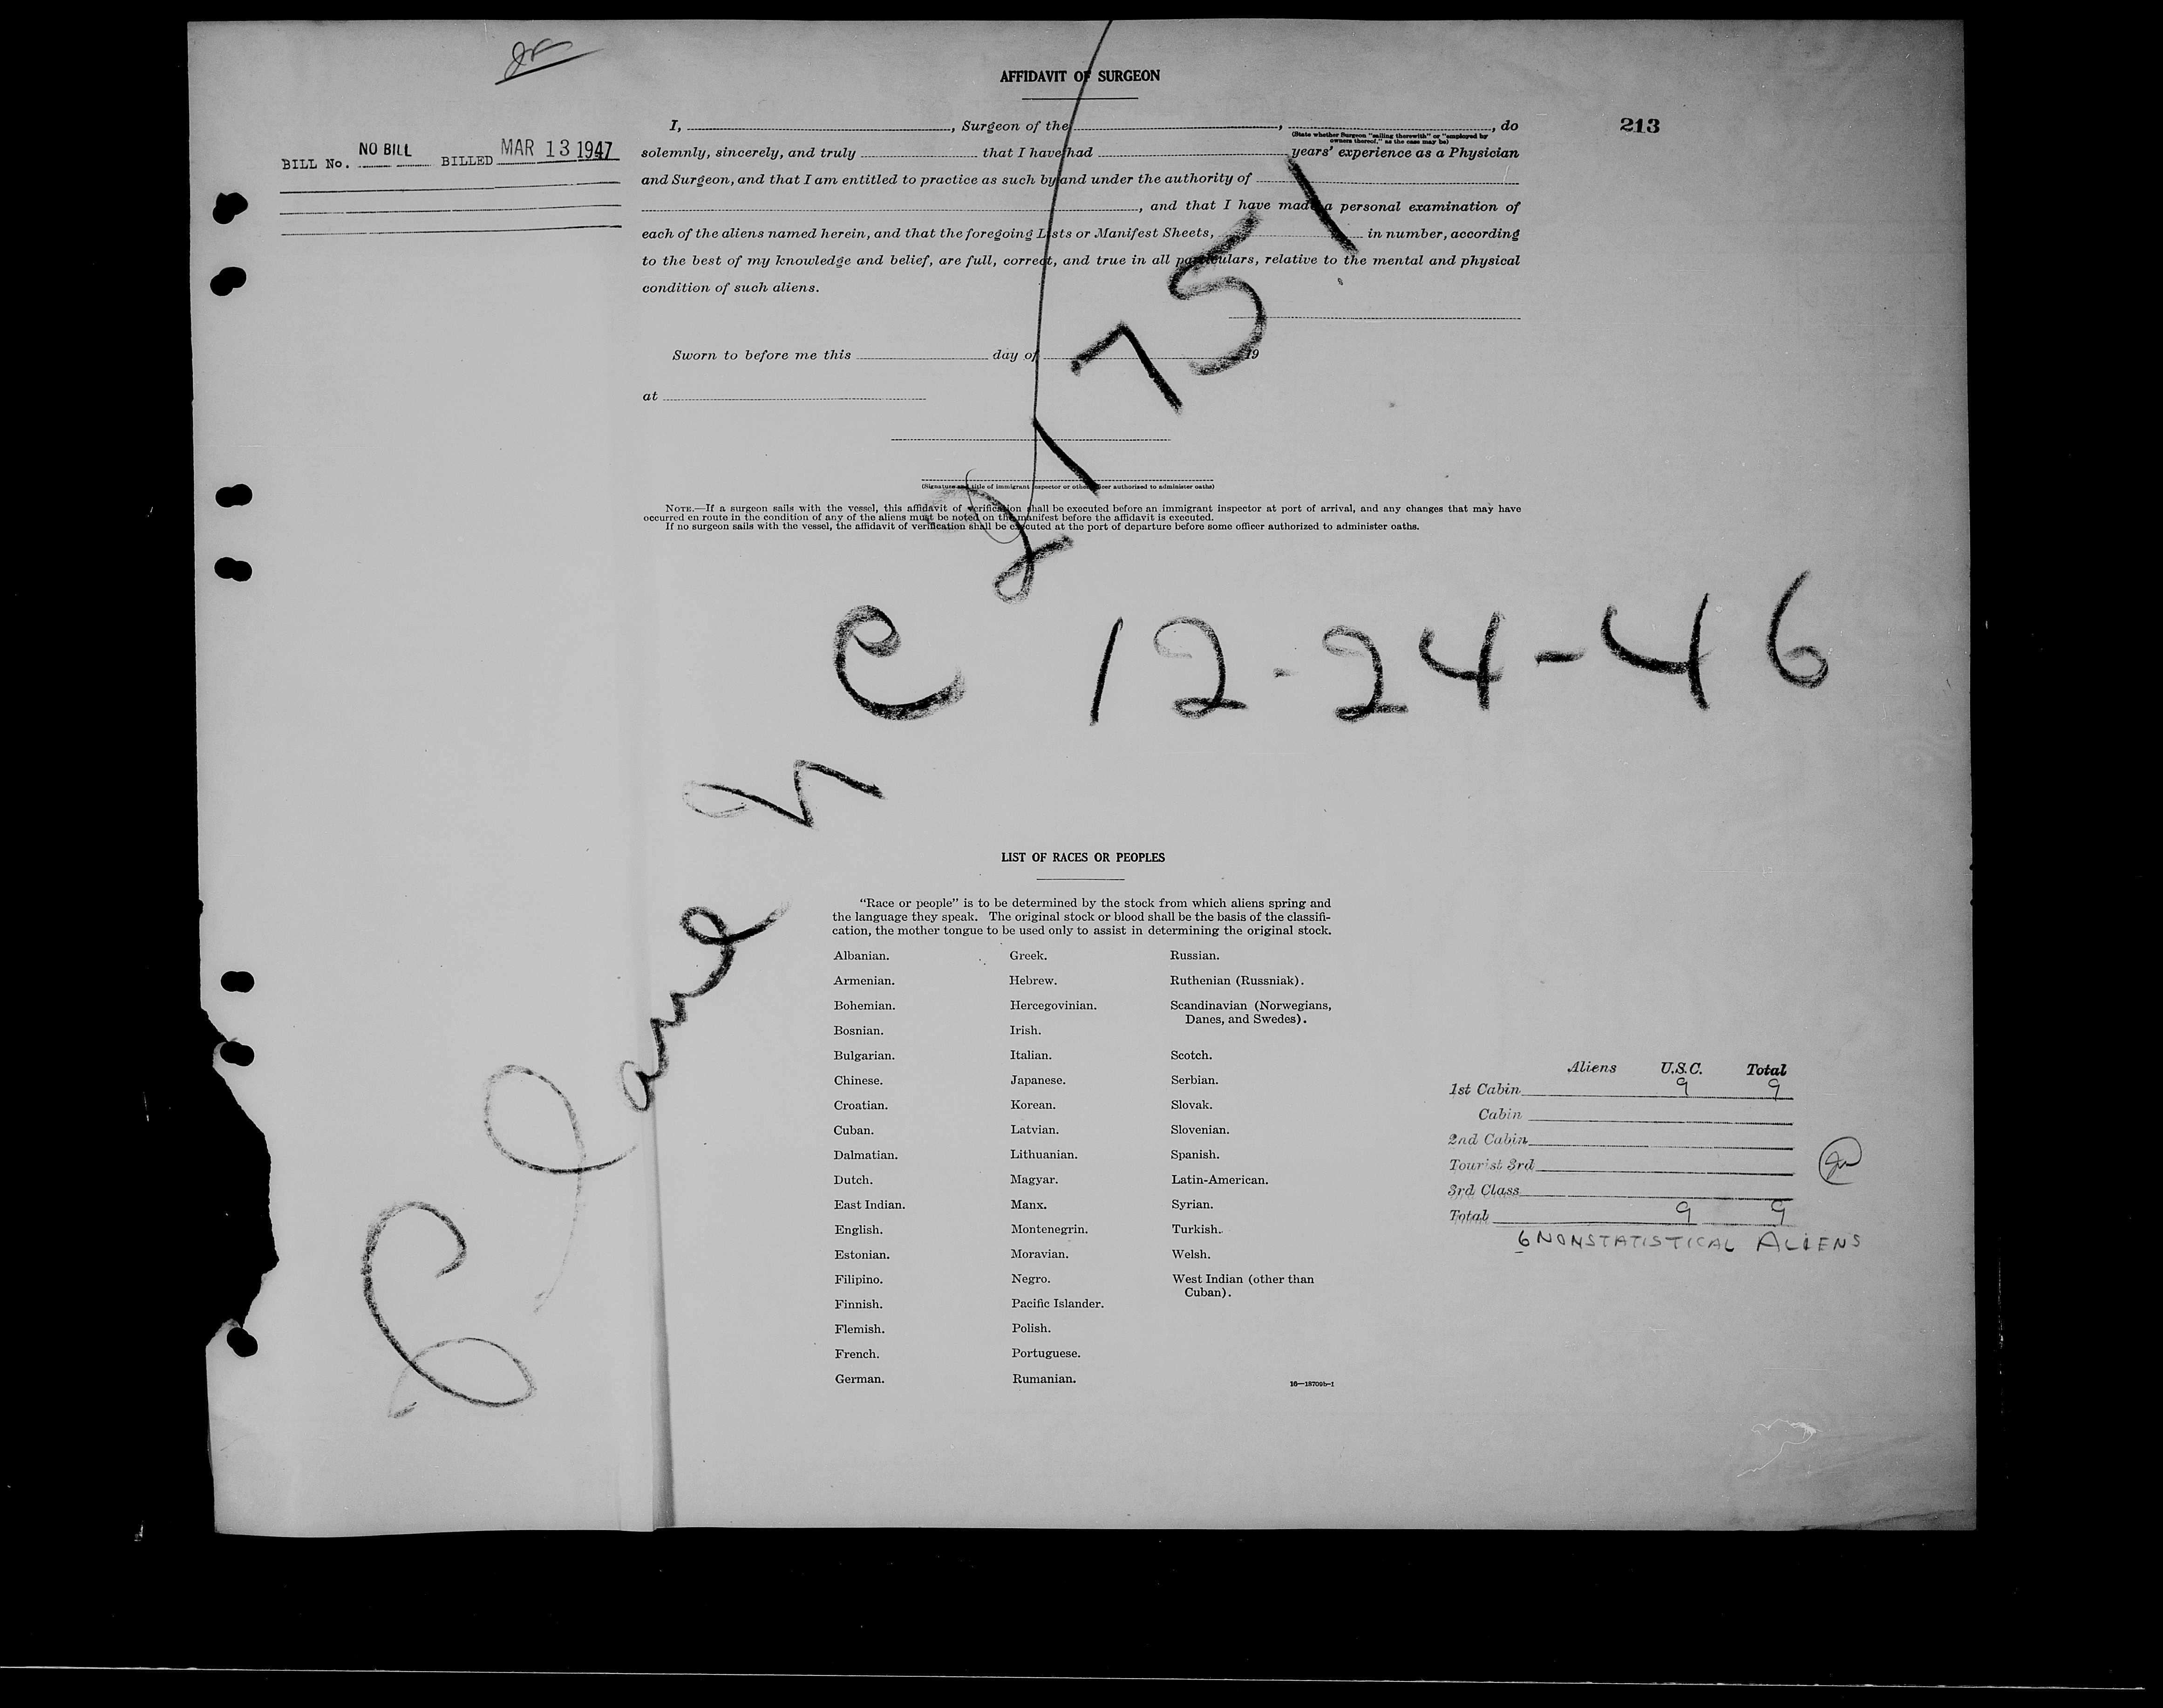 AFFIDAVIT OF SURGEON
213
BILL No. NO BILL BILLED MAR 13 1947
I, , Surgeon of the , , do
(State whether Surgeon "sailing therewith" or "employed by
owners thereof," as the case may be)
solemnly, sincerely, and truly that I have had years' experience as a Physician
and Surgeon, and that I am entitled to practice as such by and under the authority of
, and that I have made a personal examination of
each of the aliens named herein, and that the foregoing Lists or Manifest Sheets, in number, according
to the best of my knowledge and belief, are full, correct, and true in all particulars, relative to the mental and physical
condition of such aliens.
Sworn to before me this day of 19
at
(Signature and title of immigrant inspector or other officer authorized to administer oaths)
NOTE.—If a surgeon sails with the vessel, this affidavit of verification shall be executed before an immigrant inspector at port of arrival, and any changes that may have
occurred en route in the condition of any of the aliens must be noted on the manifest before the affidavit is executed.
If no surgeon sails with the vessel, the affidavit of verification shall be executed at the port of departure before some officer authorized to administer oaths.
21751
12-24-46
LIST OF RACES OR PEOPLES
"Race or people" is to be determined by the stock from which aliens spring and
the language they speak. The original stock or blood shall be the basis of the classifi-
cation, the mother tongue to be used only to assist in determining the original stock.
Albanian. Greek. Russian.
Armenian. Hebrew. Ruthenian (Russniak).
Bohemian. Hercegovinian. Scandinavian (Norwegians,
Danes, and Swedes).
Bosnian. Irish.
Bulgarian. Italian. Scotch.
Chinese. Japanese. Serbian.
Croatian. Korean. Slovak.
Cuban. Latvian. Slovenian.
Dalmatian. Lithuanian. Spanish.
Dutch. Magyar. Latin-American.
East Indian. Manx. Syrian.
English. Montenegrin. Turkish.
Estonian. Moravian. Welsh.
Filipino. Negro. West Indian (other than
Cuban).
Finnish. Pacific Islander.
Flemish. Polish.
French. Portuguese.
German. Rumanian.
16—18709b-1
Aliens U.S.C. Total
1st Cabin 9 9
Cabin
2nd Cabin
Tourist 3rd
3rd Class
Total 9 9
6 NONSTATISTICAL ALIENS